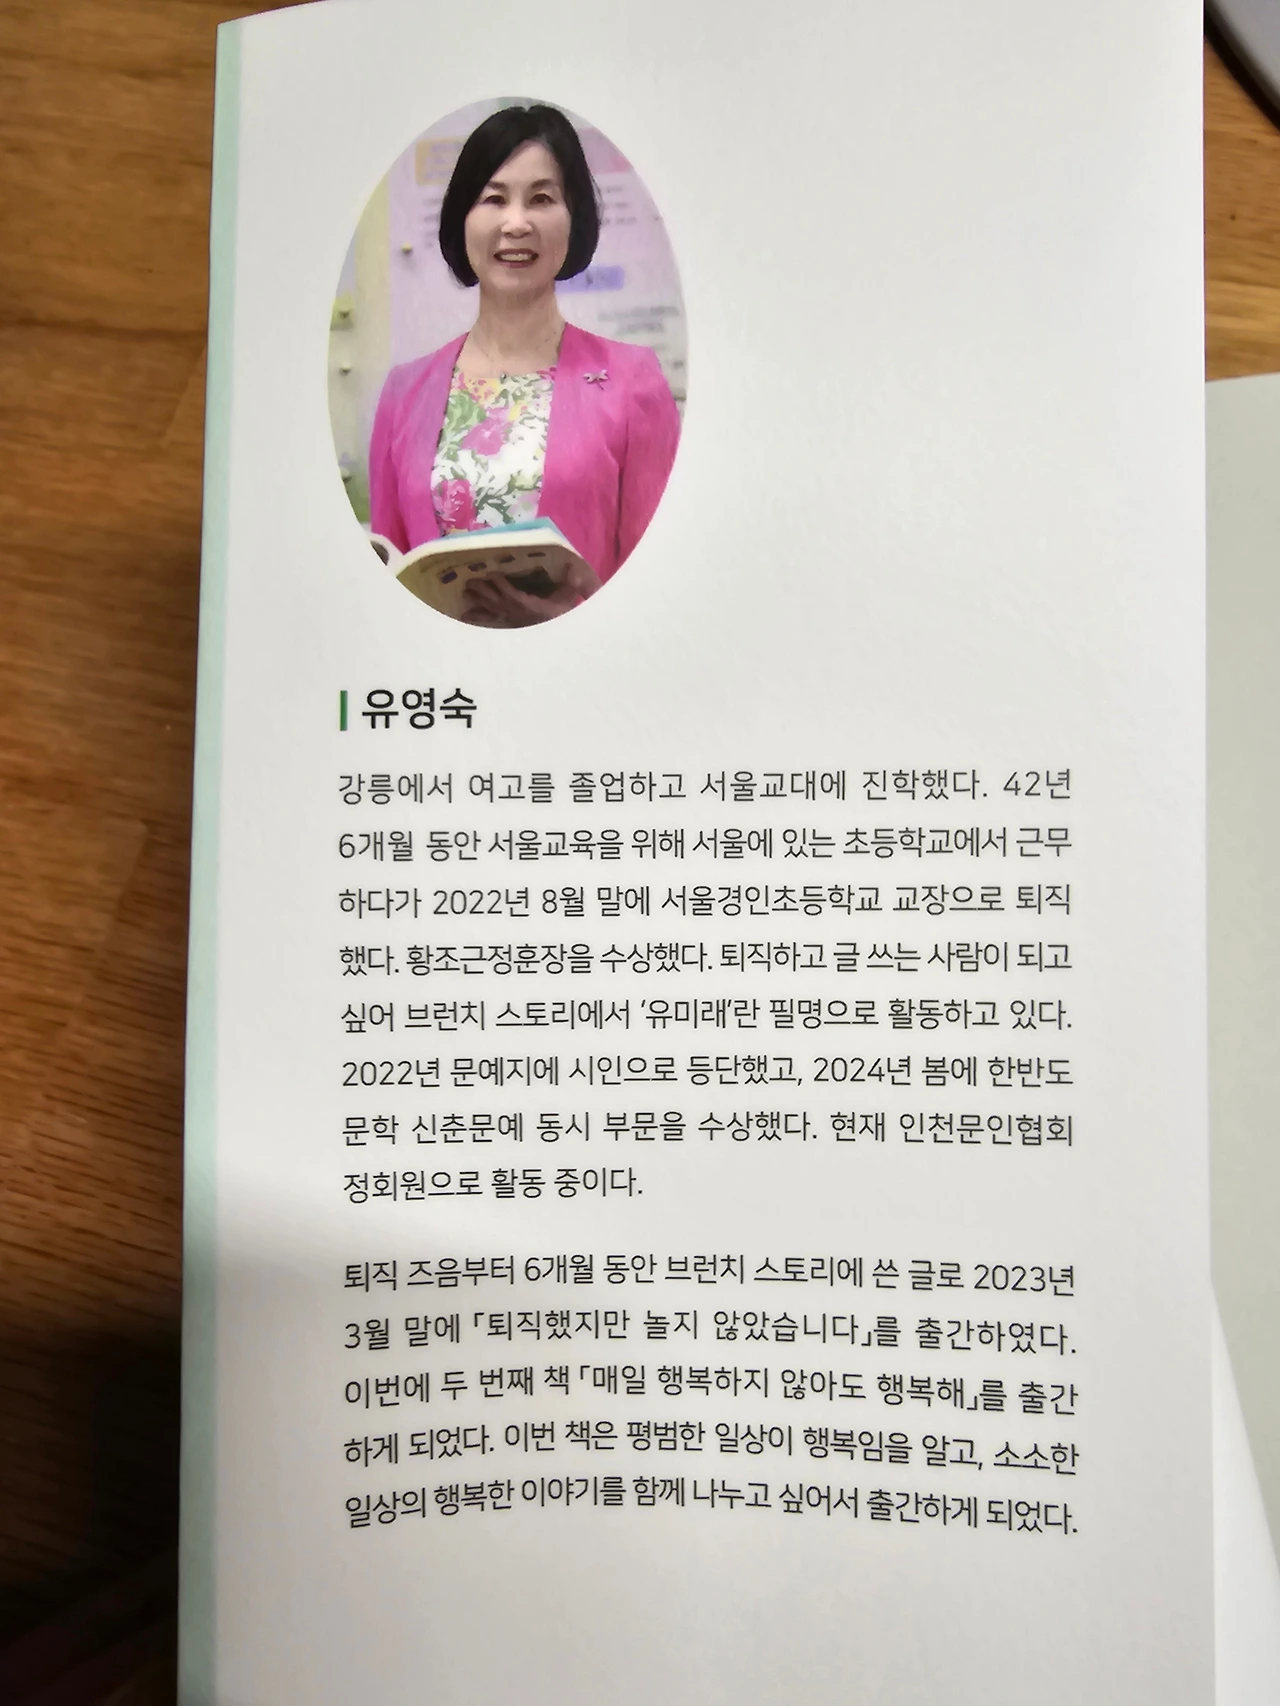 유영숙
강릉에서 여고를 졸업하고 서울교대에 진학했다. 42년
6개월 동안 서울교육을 위해 서울에 있는 초등학교에서 근무
하다가 2022년 8월 말에 서울경인초등학교 교장으로 퇴직
했다. 황조근정훈장을 수상했다. 퇴직하고 글 쓰는 사람이 되고
싶어 브런치 스토리에서 '유미래'란 필명으로 활동하고 있다.
2022년 문예지에 시인으로 등단했고, 2024년 봄에 한반도
문학 신춘문예 동시 부문을 수상했다. 현재 인천문인협회
정회원으로 활동 중이다.
퇴직 즈음부터 6개월 동안 브런치 스토리에 쓴 글로 2023년
3월 말에 「퇴직했지만 놀지 않았습니다」를 출간하였다.
이번에 두 번째 책 「매일 행복하지 않아도 행복해」를 출간
하게 되었다. 이번 책은 평범한 일상이 행복임을 알고, 소소한
일상의 행복한 이야기를 함께 나누고 싶어서 출간하게 되었다.